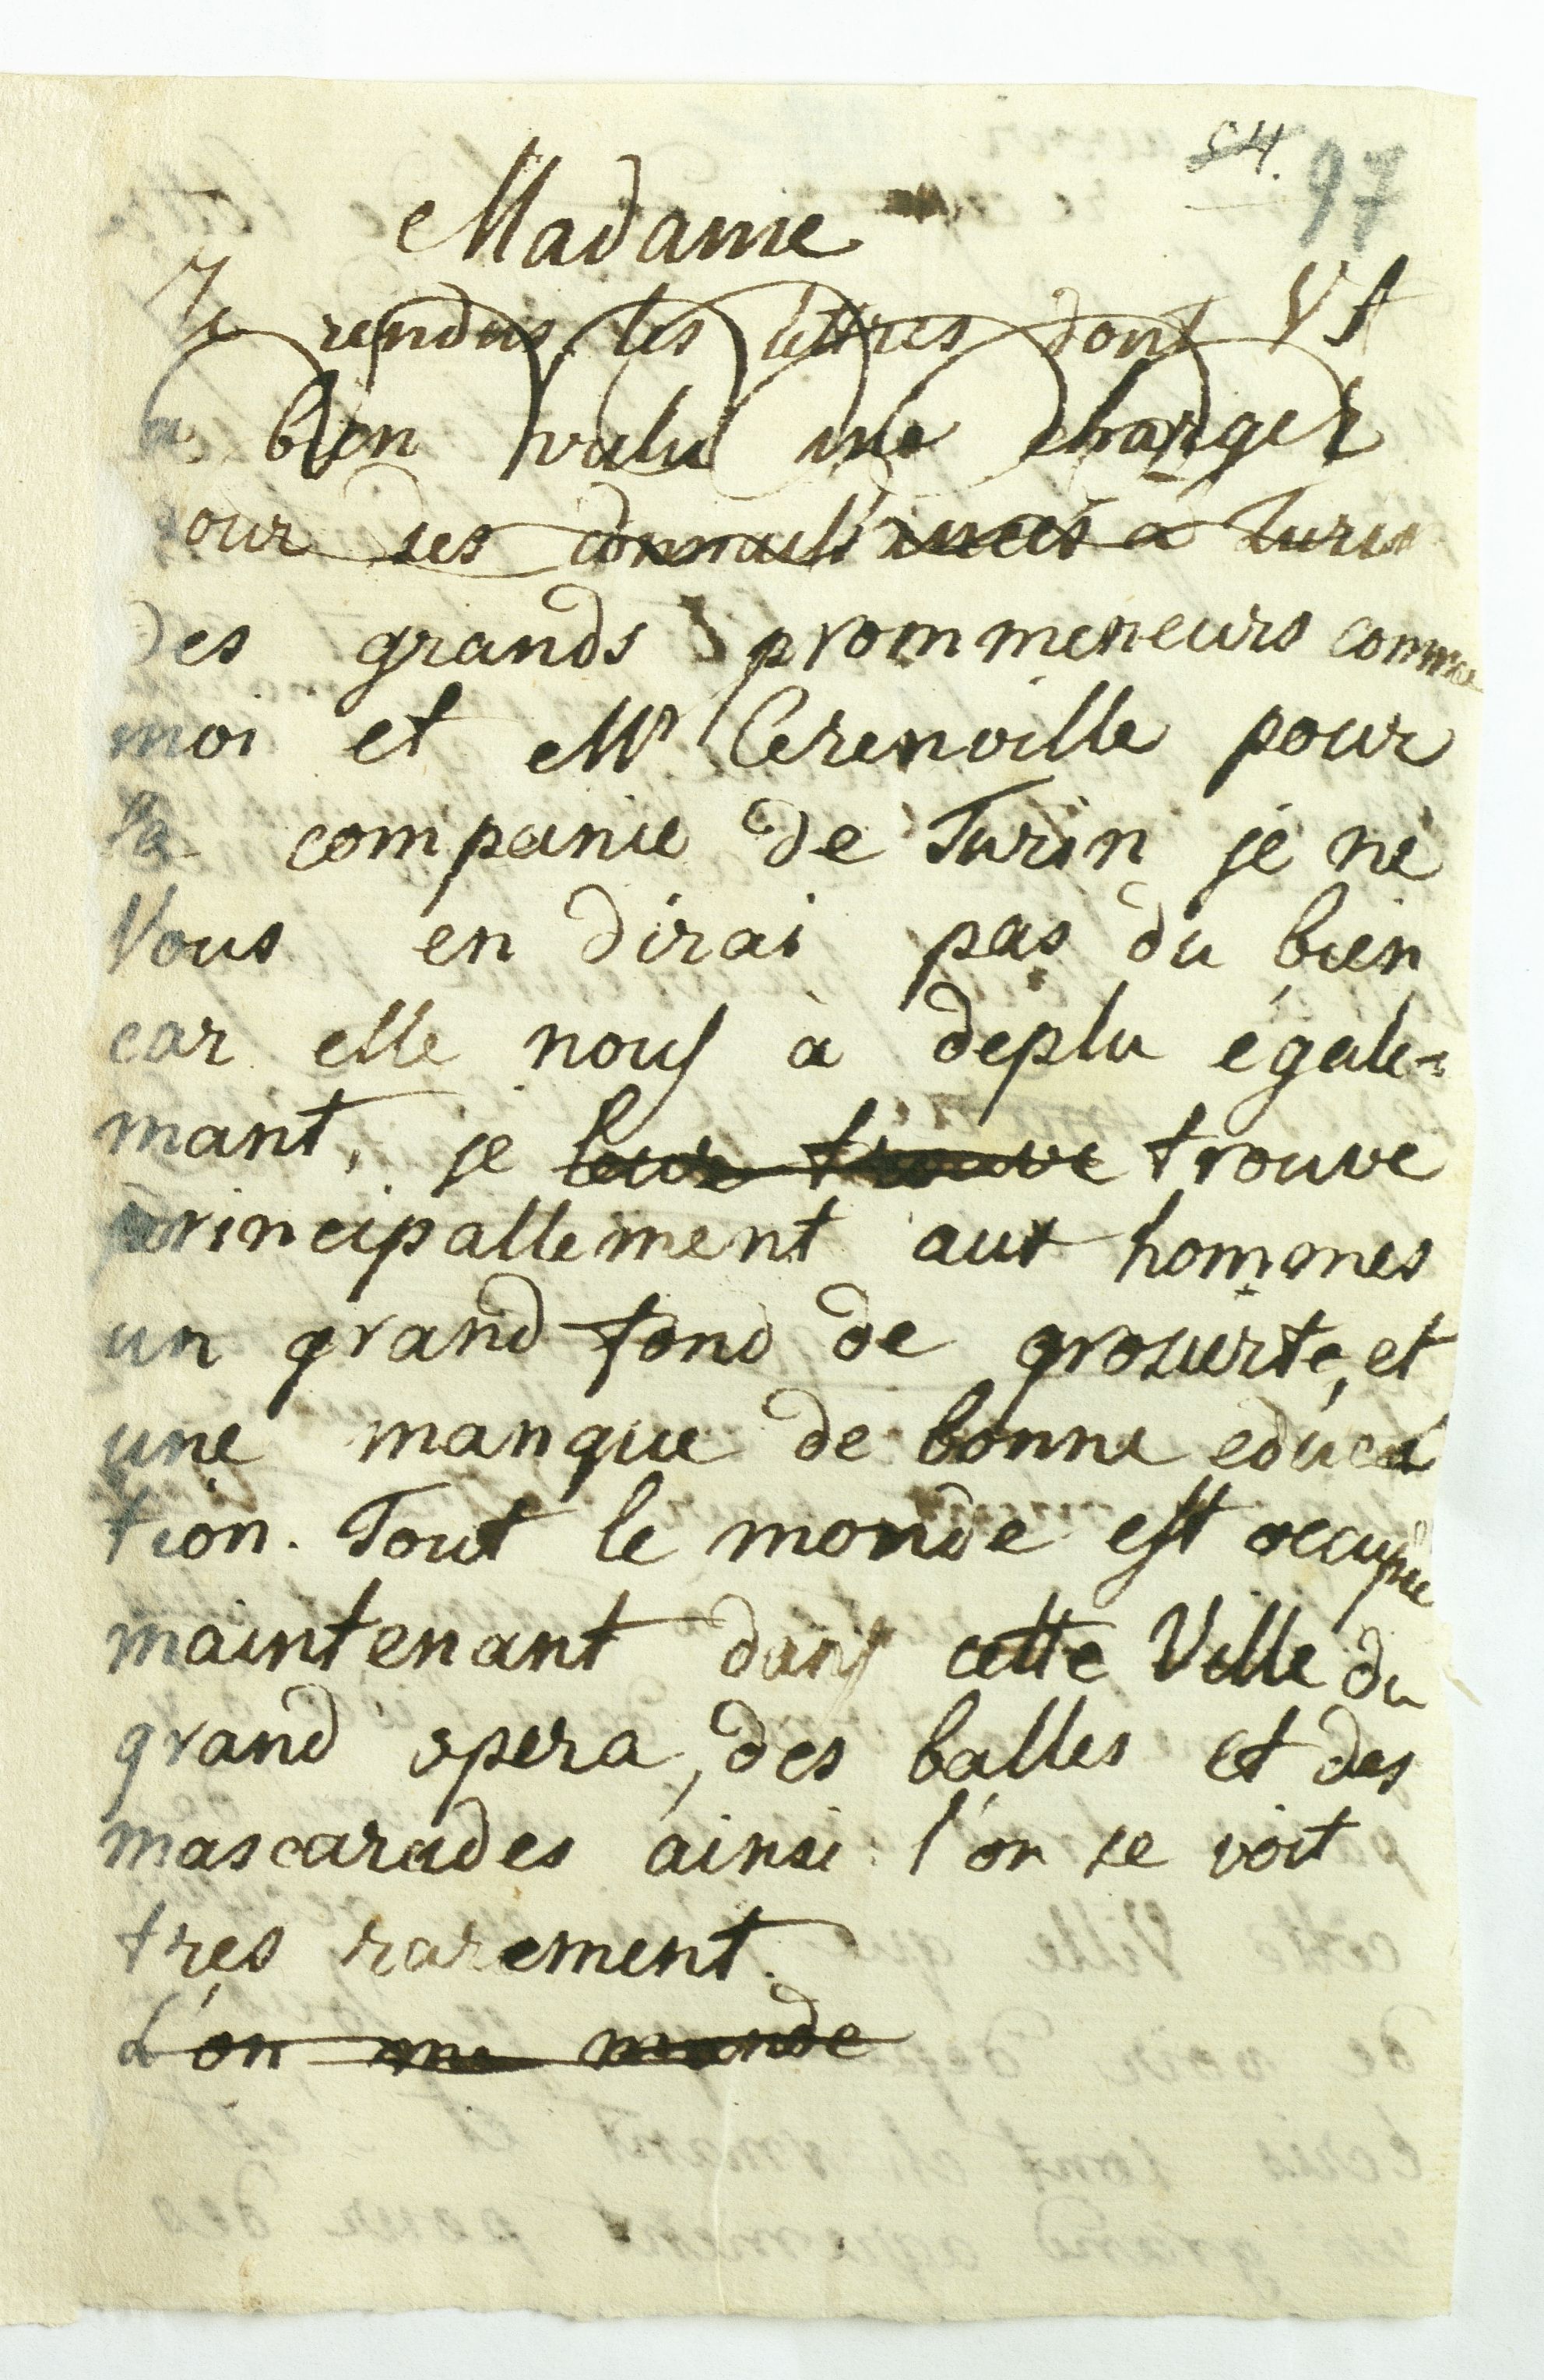 54. 97
Madame
Je rendus les lettres dont V A
a bien valu me charger
our ses connaissances a Turin
Des grands prommeneurs comme
moi et Mr Cerenville pour
la companie de Turin je ne
Vous en dirai pas du bien
car elle nous à deplu égale-
mant, je leur trouve trouve
principallement aux hommes
un grand fond de grosierte, et
une manque de bonne educa
tion. Tout le monde est occupée
maintenant dans cette Ville du
grand opera, des balles et des
mascarades ainsi l'on se voit
tres rarement.
L'on me mande